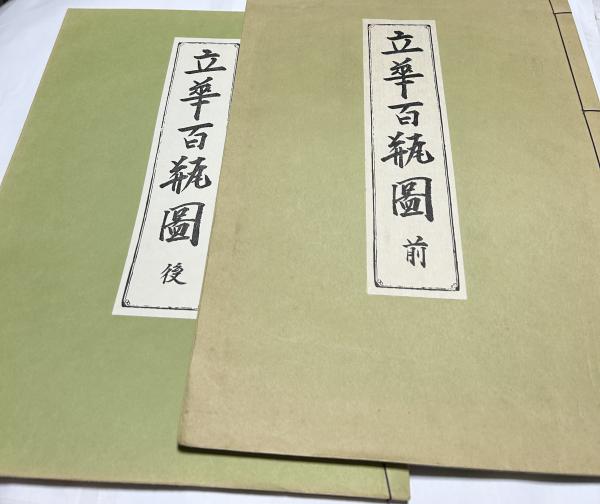 立華百瓶圖
後
立華百瓶圖
前